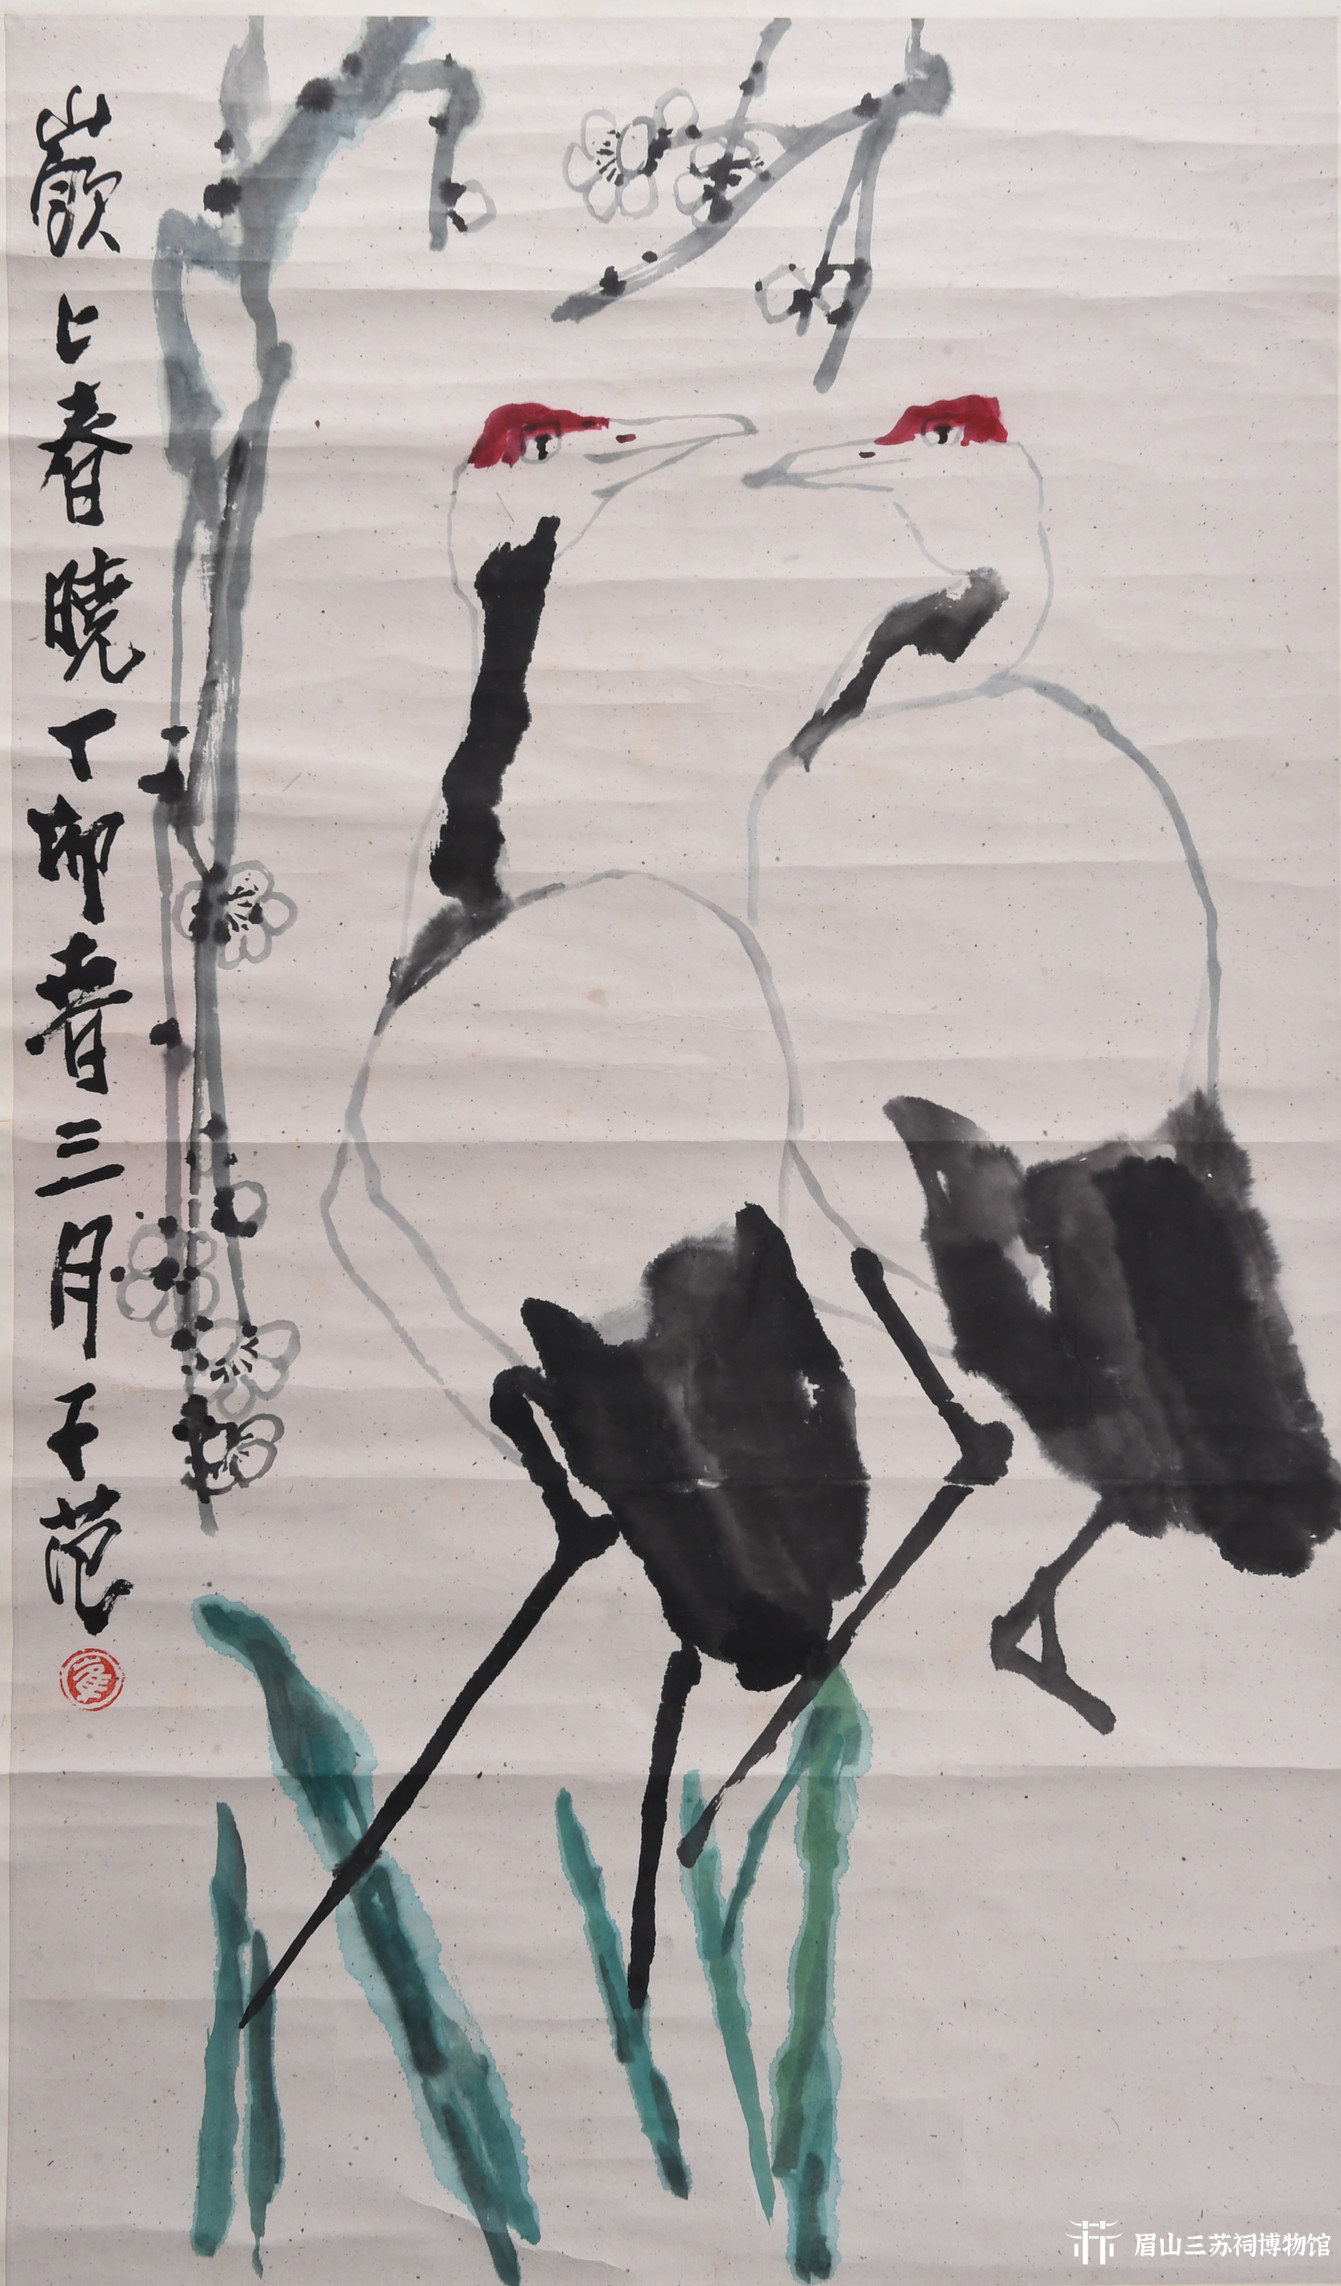 嶺上春曉丁卯春三月千范
眉山三苏祠博物馆